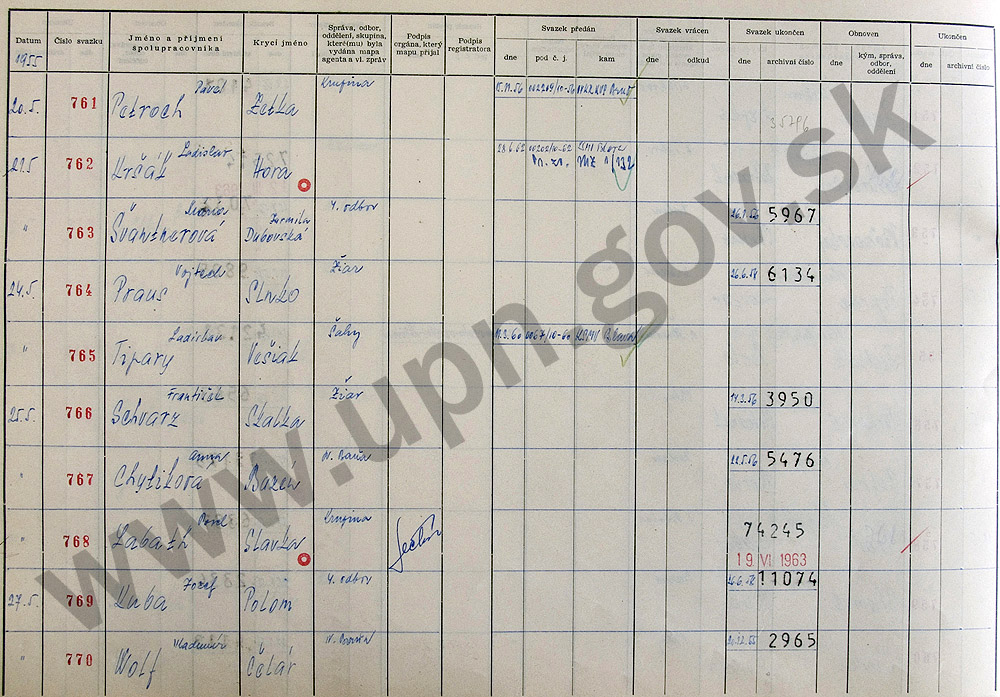 Datum
1955
Číslo svazku
Jméno a příjmení
spolupracovníka
Krycí jméno
Správa, odbor,
oddělení, skupina,
které(mu) byla
vydána mapa
agenta a vl. zpráv
Podpis
orgána, který
mapu přijal
Podpis
registratora
Svazek předán
dne
pod č. j.
kam
Svazek vrácen
dne
odkud
Svazek ukončen
dne
archivní číslo
Obnoven
dne
kým, správa,
odbor,
oddělení
Ukončen
dne
archivní číslo
20.5. 761 Petroch Pavel Zetka Krupina
35796
21.5 762 Kršák Ladislav Hora 28.6.62
" 763 Švantnerová Mária Jarmila Dubovská 4. odbor 5967
24.5. 764 Praus Vojtech Slnko Žiar 26.6.58 6134
" 765 Tipary Ladislav Vešiak Šahy 11.3.60
25.5. 766 Schvarz František Skalka Žiar 14.3.56 3950
" 767 Chytilova Anna Bazén N. Baňa 5476
" 768 Labath Slavka Krupina 74245
19 VI. 1963
27.5. 769 Kuba Jozef Polom 4. odbor 11074
" 770 Wolf Vladimír Čelár 2965
www.upn.gov.sk